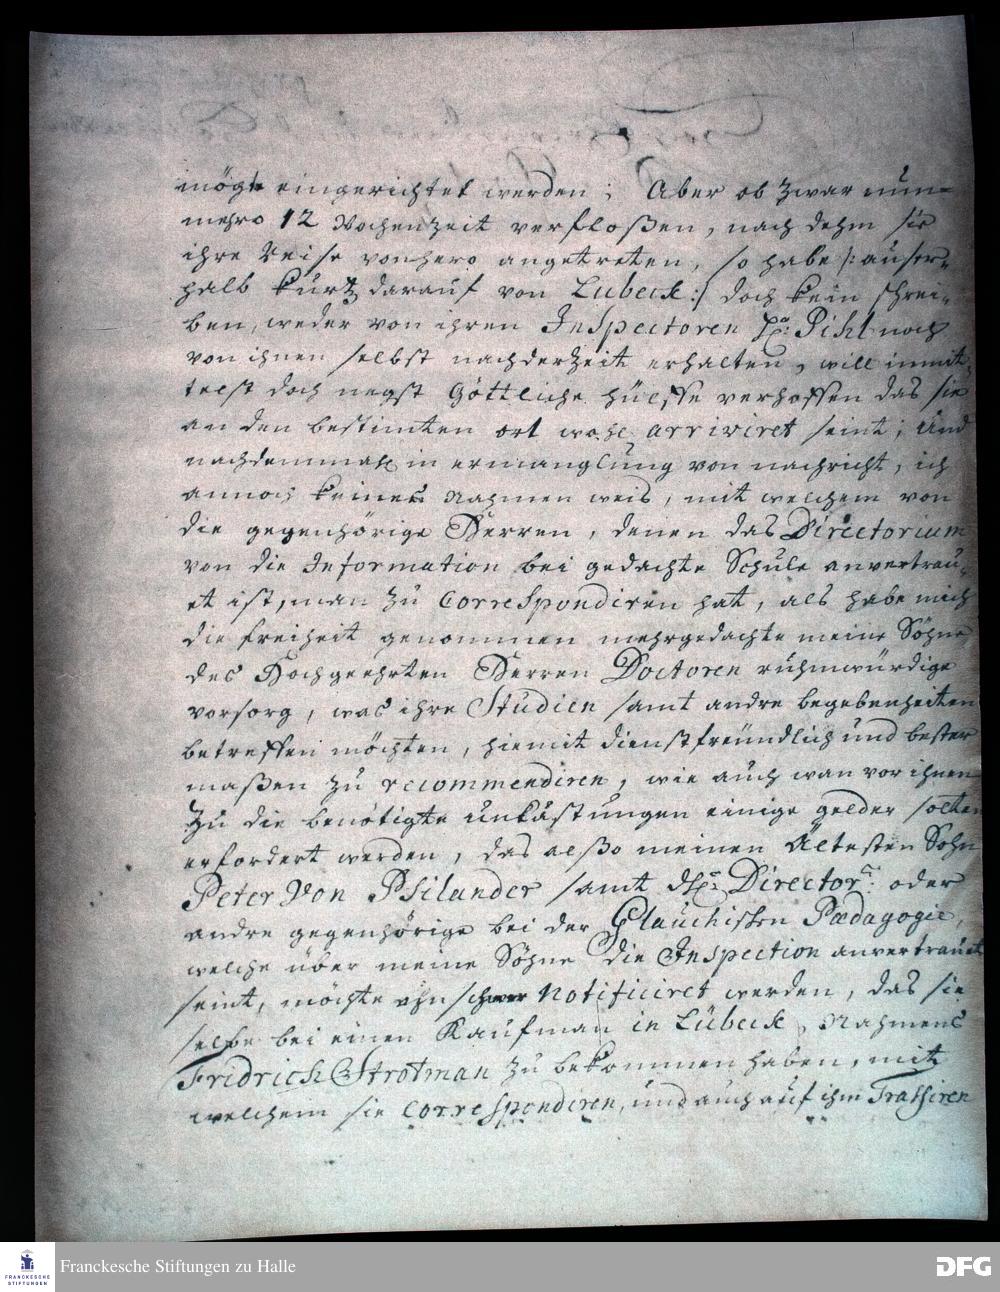 mögte eingerichtet werden; Aber ob zwar nun=
mehro 12 Wochen zeit verfloßen, nach dehm sie
ihre Reise von hero angetreten, so habe /: auser=
halb kurtz darauf von Lubeck :/ doch kein schrei=
ben, weder von ihren Inspectoren H: Pihl noch
von ihnen selbst nach der zeit erhalten, will immit=
telst doch negst Göttliche hülffe verhoffen das sie
an den bestimten ort wohl arriviret seint; Und
nachdemmahl in ermanglung von nachricht, ich
annoch keinen Nahmen weis, mit welchem von
die gegenhörige Herren, denen das Directorium
von die Information bei gedachte Schule anvertrau=
et ist, man zu Correspondiren hat, als habe mich
die freiheit genommen mehrgedachte meine Söhne
des Hochgeehrten Herren Doctoren ruhmwürdige
vorsorg, was ihre Studien samt andre begebenheiten
betreffen möchten, hiemit dienstfreündlich und bester
maßen zu recommendiren, wie auch wan vor ihnen
zu die benötigte unkåstungen einige gelder solten
erfordert werden, das alßo meinen Ältesten Sohn
Peter Von Psilander samt Director: oder
andre gegenhörige bei der Glauchischen Pædagogie,
welche über meine Söhne die Inspection anvertrauet
seint, möchte ohnschwer Notificiret werden, das sie
selbe bei einen Kaufman in Lübeck, Nahmens
Fridrich Strotman zu bekommen haben, mit
welchem sie Correspondiren, und auch auf ihm Trassiren
Franckesche Stiftungen zu Halle
DFG
FRANCKESCHE
STIFTUNGEN